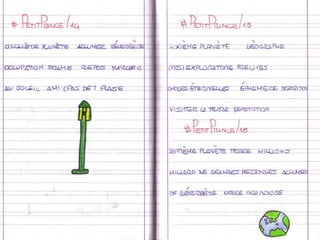 # PetitPrince/14
CINQUIÈME PLANÈTE ALLUMER RÉVERBÈRE
OCCUPATION REPOS MARCHER
AU SOLEIL AMI (PAS DE) PLACE
# PetitPrince/15
SIXIÈME PLANÈTE GÉOGRAPHE
(PAS) EXPLORATEURS PREUVES
CHOSES ÉTERNELLES ÉPHÉMÈRE
VISITER LA TERRE RÉPUTATION
# PetitPrince/16
SEPTIÈME PLANÈTE TERRE MILLIONS
MILLIARD DE GRANDES PERSONNES ALLUMEURS
DE RÉVERBÈRE ORDRE GRANDIOSE